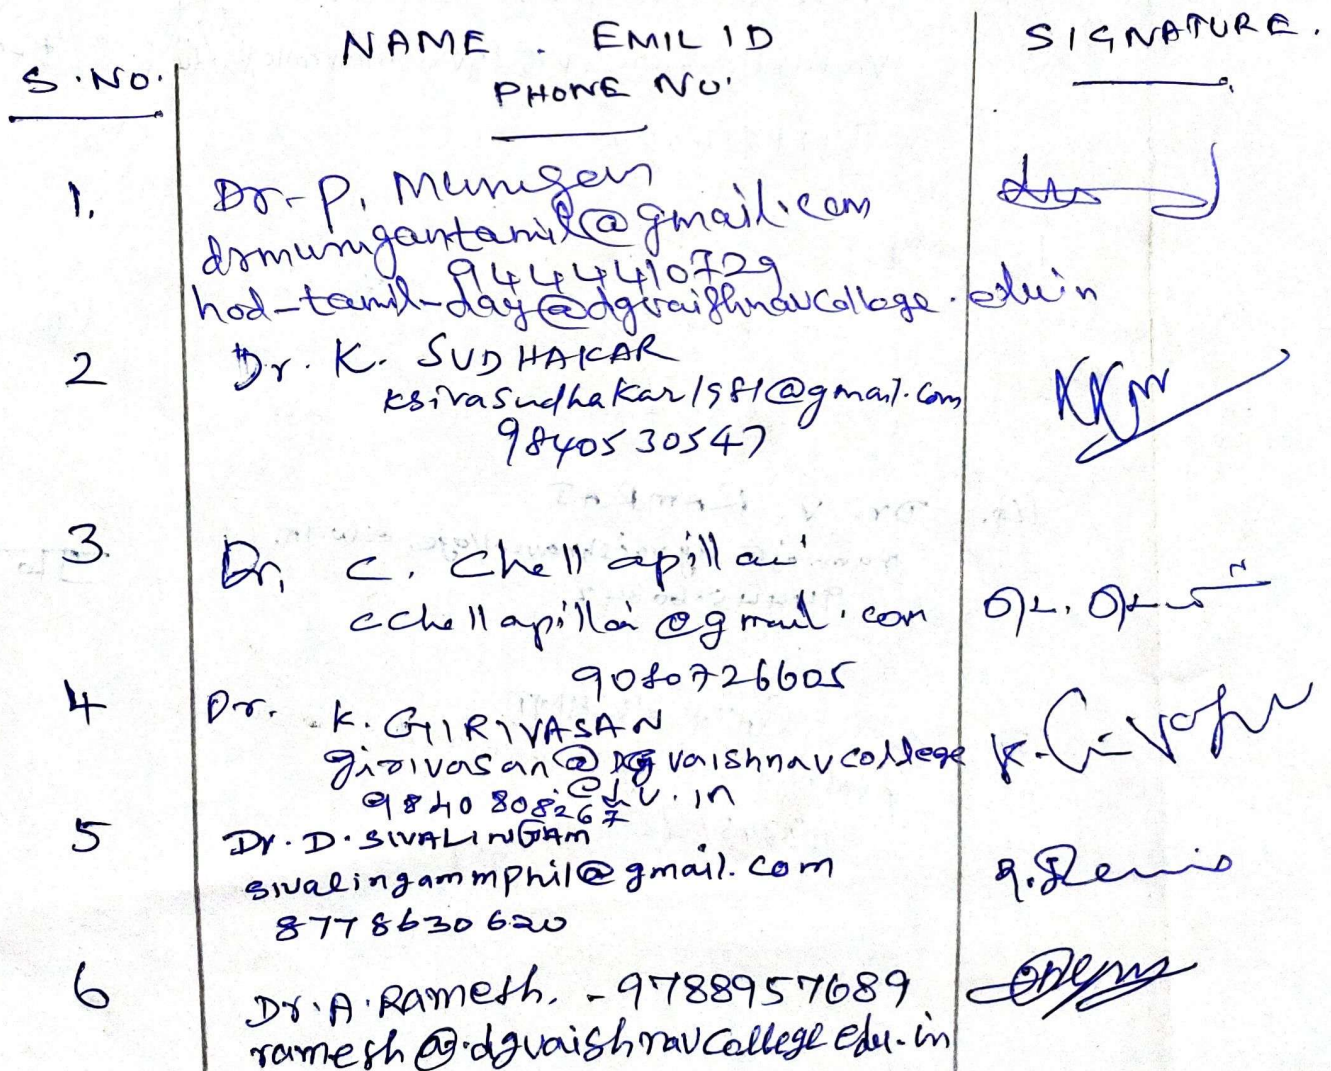 S.NO. NAME . EMIL ID SIGNATURE.
PHONE NO.
1. Dr. P. Murugan
drmurugantamil@gmail.com
9444410729
hod-tamil-day@dgvaishnavcollege.edu.in
2 Dr. K. SUDHAKAR
ksivasudhakar1981@gmail.com
9840530547
3. Dr. C. Chellapillai
cchellapillai@gmail.com
9080726605
4 Dr. K. GIRIVASAN
girivasan@dgvaishnavcollege
.edu.in
9840808267
5 Dr. D. SIVALINGAM
sivalingammphil@gmail.com
8778630620
6 Dr. A. Ramesh. - 9788957689
ramesh@dgvaishnavcollege.edu.in